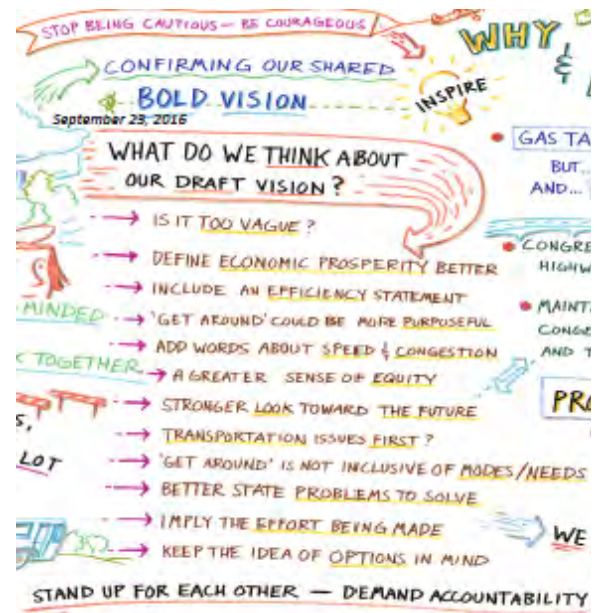 STOP BEING CAUTIOUS — BE COURAGEOUS
WHY
&
CONFIRMING OUR SHARED
BOLD VISION
INSPIRE
September 23, 2016
GAS TA
BUT...
AND...
WHAT DO WE THINK ABOUT
OUR DRAFT VISION?
→ IS IT TOO VAGUE?
→ DEFINE ECONOMIC PROSPERITY BETTER
→ INCLUDE AN EFFICIENCY STATEMENT
→ 'GET AROUND' COULD BE MORE PURPOSEFUL
→ ADD WORDS ABOUT SPEED & CONGESTION
→ A GREATER SENSE OF EQUITY
→ STRONGER LOOK TOWARD THE FUTURE
→ TRANSPORTATION ISSUES FIRST?
→ 'GET AROUND' IS NOT INCLUSIVE OF MODES/NEEDS
→ BETTER STATE PROBLEMS TO SOLVE
→ IMPLY THE EFFORT BEING MADE
→ KEEP THE IDEA OF OPTIONS IN MIND
MINDED
TOGETHER
S,
LOT
CONGRE
HIGHW
MAINT
CONGE
AND T
PRO
WE
STAND UP FOR EACH OTHER — DEMAND ACCOUNTABILITY